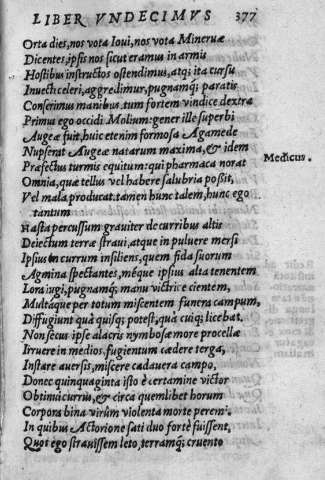 LIBER VNDECIMVS 377
Orta dies, nos vota Ioui, nos vota Mineruæ
Dicentes, ipsis nos sicut eramus in armis
Hostibus instructos ostendimus, atq; ita cursu
Inuecti celeri, aggredimur, pugnamq; paratis
Conserimus manibus. tum fortem vindice dextra
Primus ego occidi Molium: gener ille superbi
Augeæ fuit, huic etenim formosa Agamede
Nupserat Augeæ natarum maxima, & idem
Præfectus turmis equitum: qui pharmaca norat
Medicus.
Omnia, quæ tellus vel habere salubria possit,
Vel mala producat. tamen hunc talem, hunc ego
tantum
Hasta percussum grauiter de curribus altis
Deiectum terræ straui, atque in puluere mersi
Ipsius in currum insiliens, quem fida suorum
Agmina spectantes, méque ipsius alta tenentem
Lora iugi, pugnamq; manu victrice cientem,
Multaque per totum miscentem funera campum,
Diffugiunt quà quisq; potest, quà cuiq; licebat.
Non secus ipse alacris nymbosæ more procellæ
Irruere in medios, fugientum cædere terga,
Instare auersis, miscere cadauera campo,
Donec quinquaginta isto è certamine victor
Obtinui currus, & circa quemlibet horum
Corpora bina virûm violenta morte peremi.
In quibus Actorione sati duo fortè fuissent,
Quos ego strauissem leto, terramq; cruento